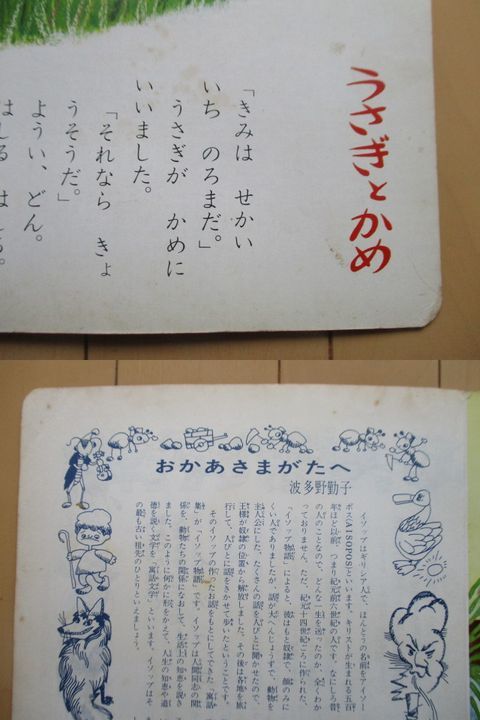 うさぎとかめ
「きみは せかい
いち のろまだ。」
うさぎが かめに
いいました。
「それなら きょ
うそうだ。」
ようい、どん。
はしる はしる。
おかあさまがたへ
波多野勤子
イソップはギリシア人で、ほんとうの名前をアイソー
ポス(AISOPOS)といいます。キリストが生まれる五百
年ほど以前、つまり紀元前六世紀の人です。なにしろ昔
の人のことなので、どんな一生を送ったのか、全くわか
っておりません。ただ、紀元十四世紀ごろに作られた、
「イソップ物語」によると、彼はもと奴隷で、顔のみに
くい人でありましたが、話が大へんじょうずで、動物を
主人公にした、たくさんの話を人びとに聞かせたので、
王様が奴隷の位置から解放しました。その後は各地を旅
行して、人びとに話をきかせて歩いたということです。
そのイソップの作ったお話をもとにしてできた寓話
集が、「イソップ物語」です。イソップは人間同志の関
係を、動物たちの関係になおして、生活上の知恵を説き
ました。このように何かに形をかえて、人生の知恵や道
徳を説く文学を、寓話文学といいます。イソップはそ
の最も古い祖先のひとりといえましょう。